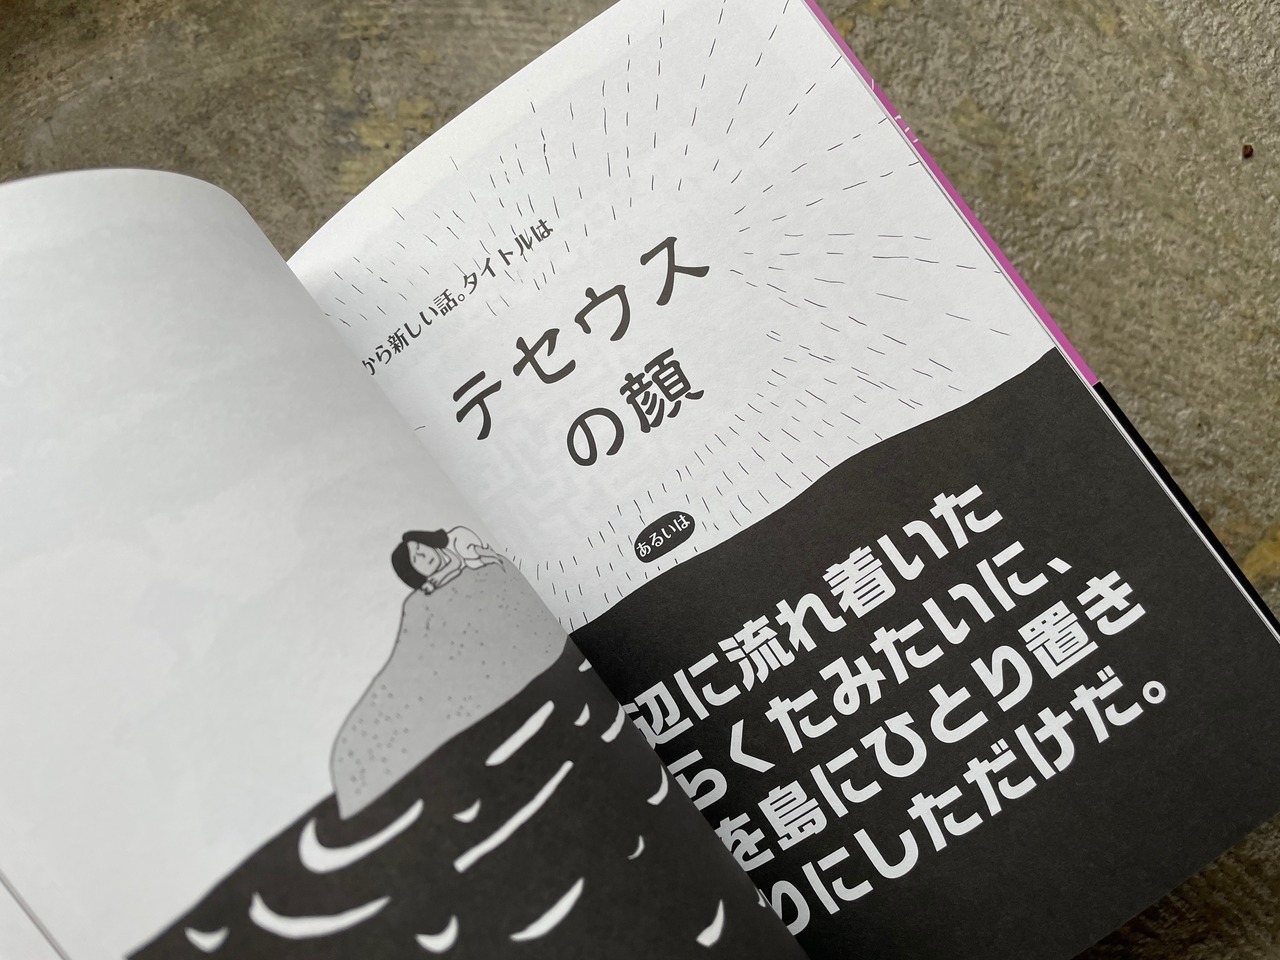 から新しい話。タイトルは
テセウス
の顔
あるいは
辺に流れ着いた
らくたみたいに、
を島にひとり置き
りにしただけだ。